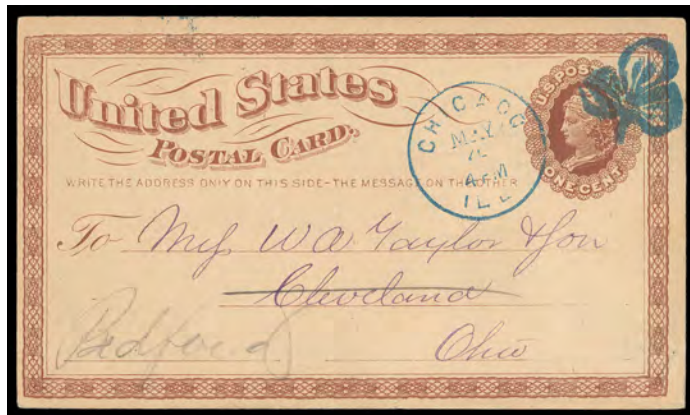 United States
POSTAL CARD.
WRITE THE ADDRESS ONLY ON THIS SIDE-THE MESSAGE ON THE OTHER
U.S. POSTAGE
ONE CENT
CHICAGO
MAY
4 PM
ILL
To Mess W A Taylor & Son
Cleveland
Bedford
Ohio